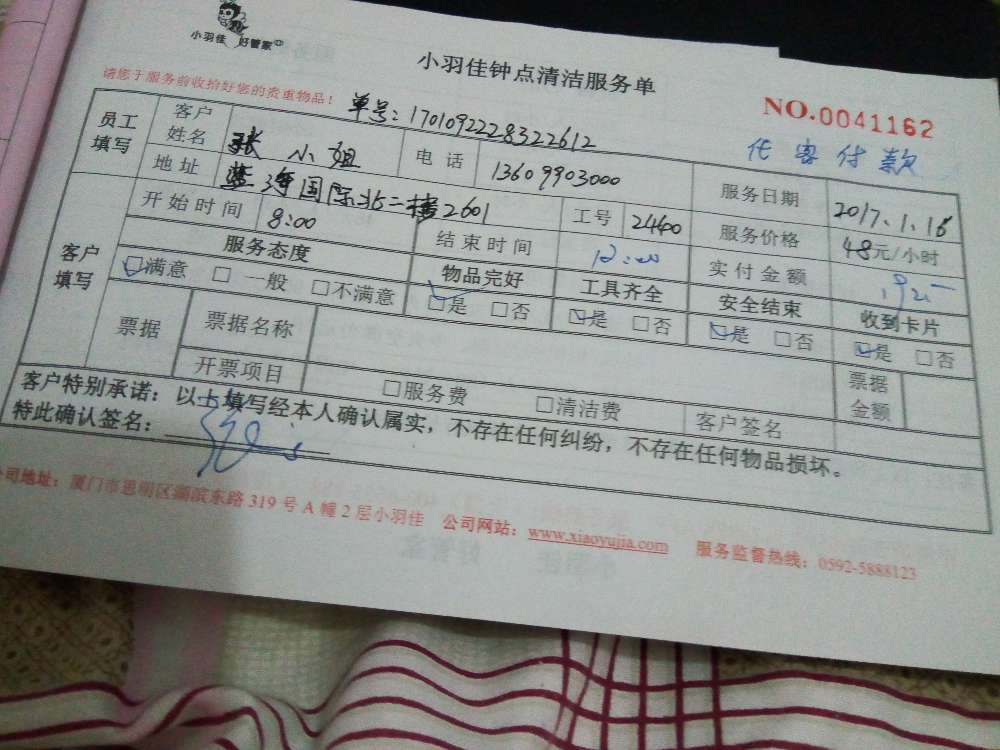 小羽佳 好管家
小羽佳钟点清洁服务单
请您于服务前收拾好您的贵重物品！
单号：1701092228322612
NO.0041162
代客付款
员工填写 客户姓名 张小姐 电话 13609903000 服务日期 2017.1.16
地址 蓝湾国际北二楼2601 工号 24400 服务价格 48元/小时
客户填写 开始时间 8:00 结束时间 12:00 实付金额 192
服务态度 物品完好 工具齐全 安全结束 收到卡片
☑满意 □一般 □不满意 ☑是 □否 ☑是 □否 ☑是 □否 ☑是 □否
票据 票据名称 票据金额
开票项目 □服务费 □清洁费 客户签名
客户特别承诺：以上填写经本人确认属实，不存在任何纠纷，不存在任何物品损坏。
特此确认签名：
公司地址：厦门市思明区湖滨东路319号A幢2层小羽佳 公司网站：www.xiaoyujia.com 服务监督热线：0592-5888123